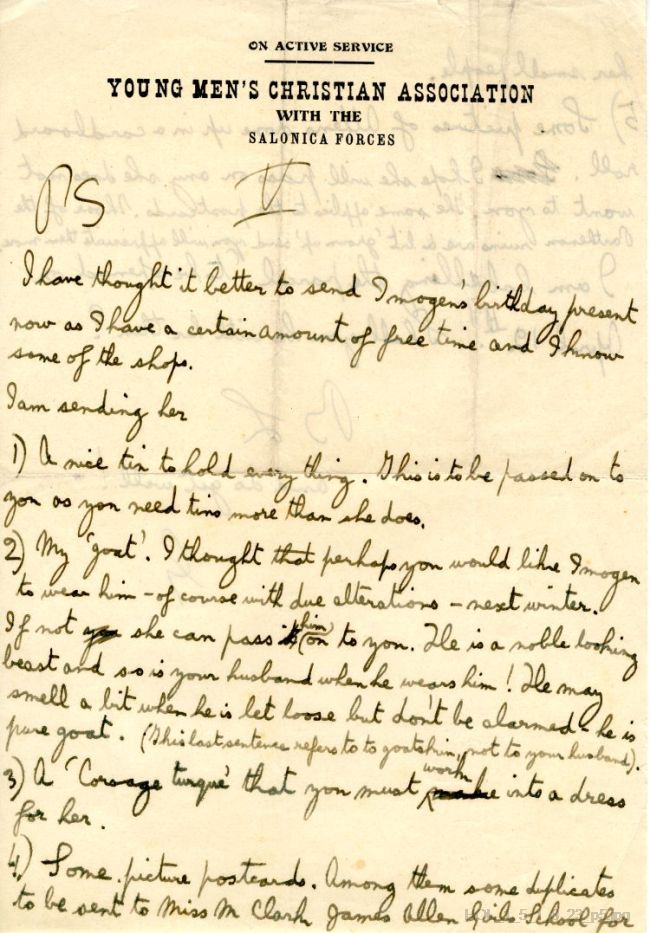 ON ACTIVE SERVICE
YOUNG MEN'S CHRISTIAN ASSOCIATION
WITH THE
SALONICA FORCES
PS V
I have thought it better to send Imogen's birthday present
now as I have a certain amount of free time and I know
some of the shops.
I am sending her
1) A nice tin to hold everything. This is to be passed on to
you as you need tins more than she does.
2) My 'goat'. I thought that perhaps you would like Imogen
to wear him - of course with due alterations - next winter.
If not you she can pass it him on to you. He is a noble looking
beast and so is your husband when he wears him! He may
smell a bit when he is let loose but don't be alarmed - he is
pure goat. (This last sentence refers to to goatskin, not to your husband).
3) A 'Corsage turque' that you must work make into a dress
for her.
4) Some picture postcards. Among them some duplicates
to be sent to Miss M Clark James Allen Girls School for